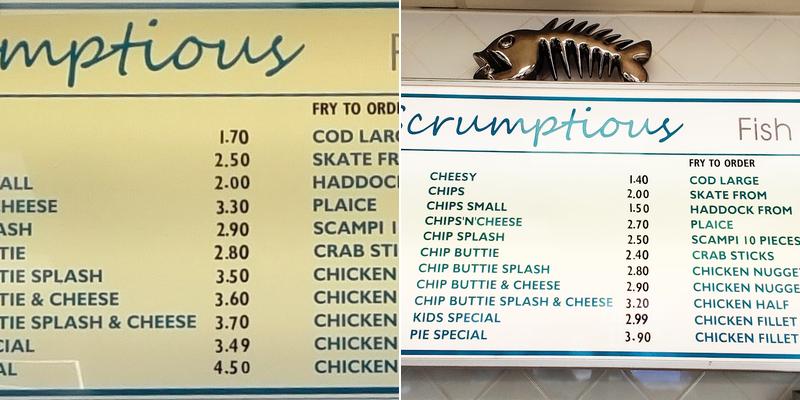 mptious
FRY TO ORD
1.70
COD LAR
2.50
SKATE FR
ALL
2.00
HADDOC
HEESE
3.30
PLAICE
ASH
2.90
SCAMPI 1
TIE
2.80
CRAB STI
TIE SPLASH
3.50
CHICKEN
TIE & CHEESE
3.60
CHICKEN
TIE SPLASH & CHEESE
3.70
CHICKEN
CIAL
3.49
CHICKEN
AL
4.50
CHICKEN
Scrumptious
Fish
FRY TO ORDER
CHEESY
1.40
COD LARGE
CHIPS
2.00
SKATE FROM
CHIPS SMALL
1.50
HADDOCK FROM
CHIPS'N'CHEESE
2.70
PLAICE
CHIP SPLASH
2.50
SCAMPI 10 PIECES
CHIP BUTTIE
2.40
CRAB STICKS
CHIP BUTTIE SPLASH
2.80
CHICKEN NUGGE
CHIP BUTTIE & CHEESE
2.90
CHICKEN NUGGE
CHIP BUTTIE SPLASH & CHEESE
3.20
CHICKEN HALF
KIDS SPECIAL
2.99
CHICKEN FILLET
PIE SPECIAL
3.90
CHICKEN FILLET